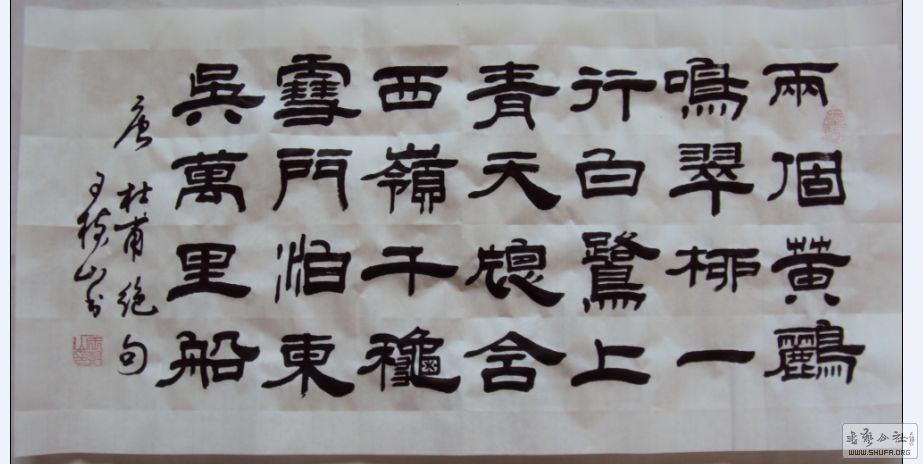 兩個黃鸝
鳴翠柳一
行白鷺上
青天牕含
西嶺千龝
雪門泊東
吳萬里船
唐 杜甫絕句
书艺公社
WWW.SHUFA.ORG